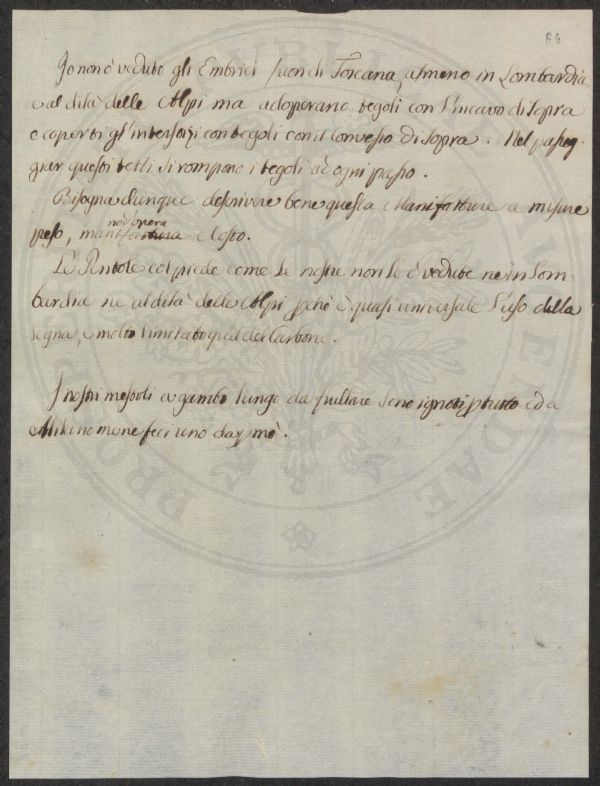 84
Io non ò veduto gli Embrici fuori di Toscana, almeno in Lombardia
e al di là delle Alpi ma adoperano tegoli con l'incavo di sopra
e coperti gl'interstizi con tegoli con il convesso di sopra. Nel passeg-
giar questi tetti si rompono i tegoli ad ogni passo.
Bisogna dunque descrivere bene questa Manifatture a misure
mod' opera
peso, manifattura e Costo.
Le Pentole col piede come le nostre non le ò vedute ne in Lom-
bardia ne al di là delle Alpi perchè è quasi universale l'uso della
legna, e molto limitato quel del Carbone.
I nostri mestoli a gambo lungo da frullare sono ignoti ed a
Milano me ne feci uno da me.